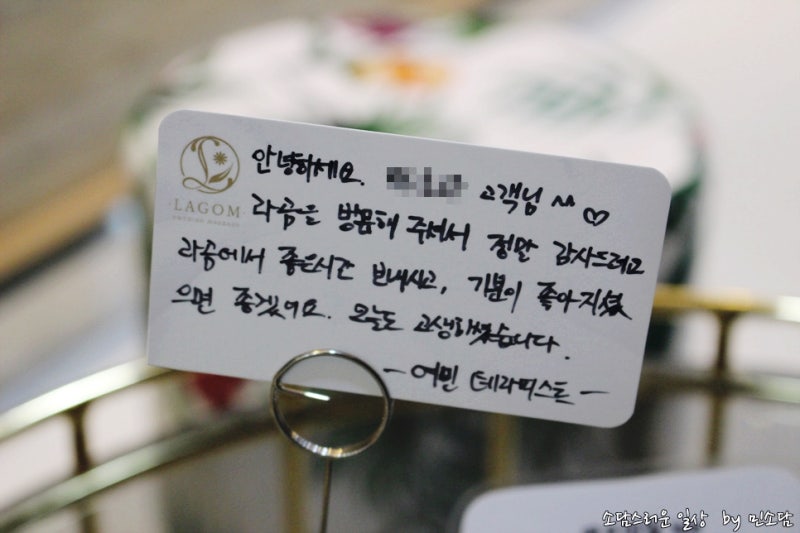 LAGOM
안녕하세요. 고객님 ^^ ♡
라곰을 방문해 주셔서 정말 감사드리고
라곰에서 좋은시간 보내시고, 기분이 좋아지셨
으면 좋겠어요. 오늘도 고생하셨습니다.
- 어민 테라피스트 -
소담스러운 일상 by 민소담